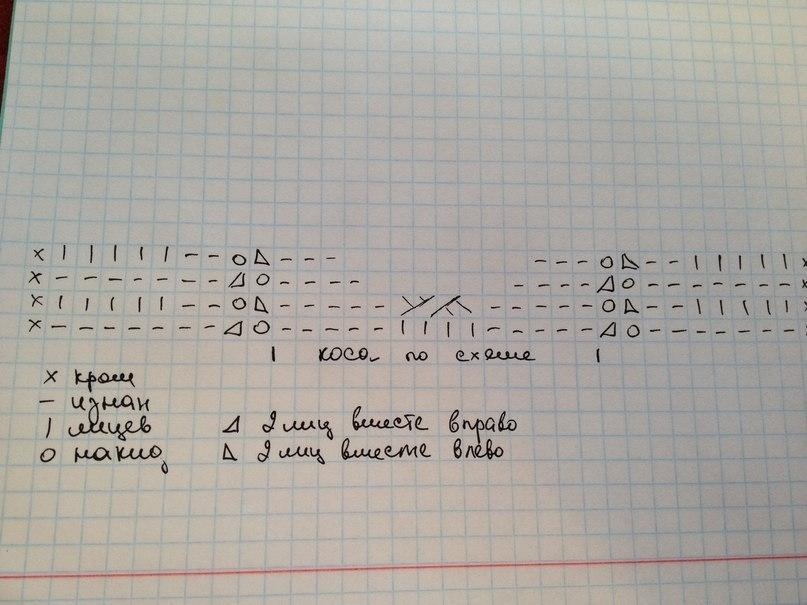 x | | | | | - - o ⊿ - - - - - - o ⊿ - - | | | | | x
x - - - - - - - ⊿ o - - - - - - - - ⊿ o - - - - - - - x
x | | | | | - - o ⊿ - - - - - - - - - - o ⊿ - - | | | | | x
x - - - - - - - ⊿ o - - - - - | | | | - - - - - ⊿ o - - - - - - - x
| коса по схеме |
x кром
- изнан
| лицев ⊿ 2 лиц вместе вправо
o накид ⊿ 2 лиц вместе влево